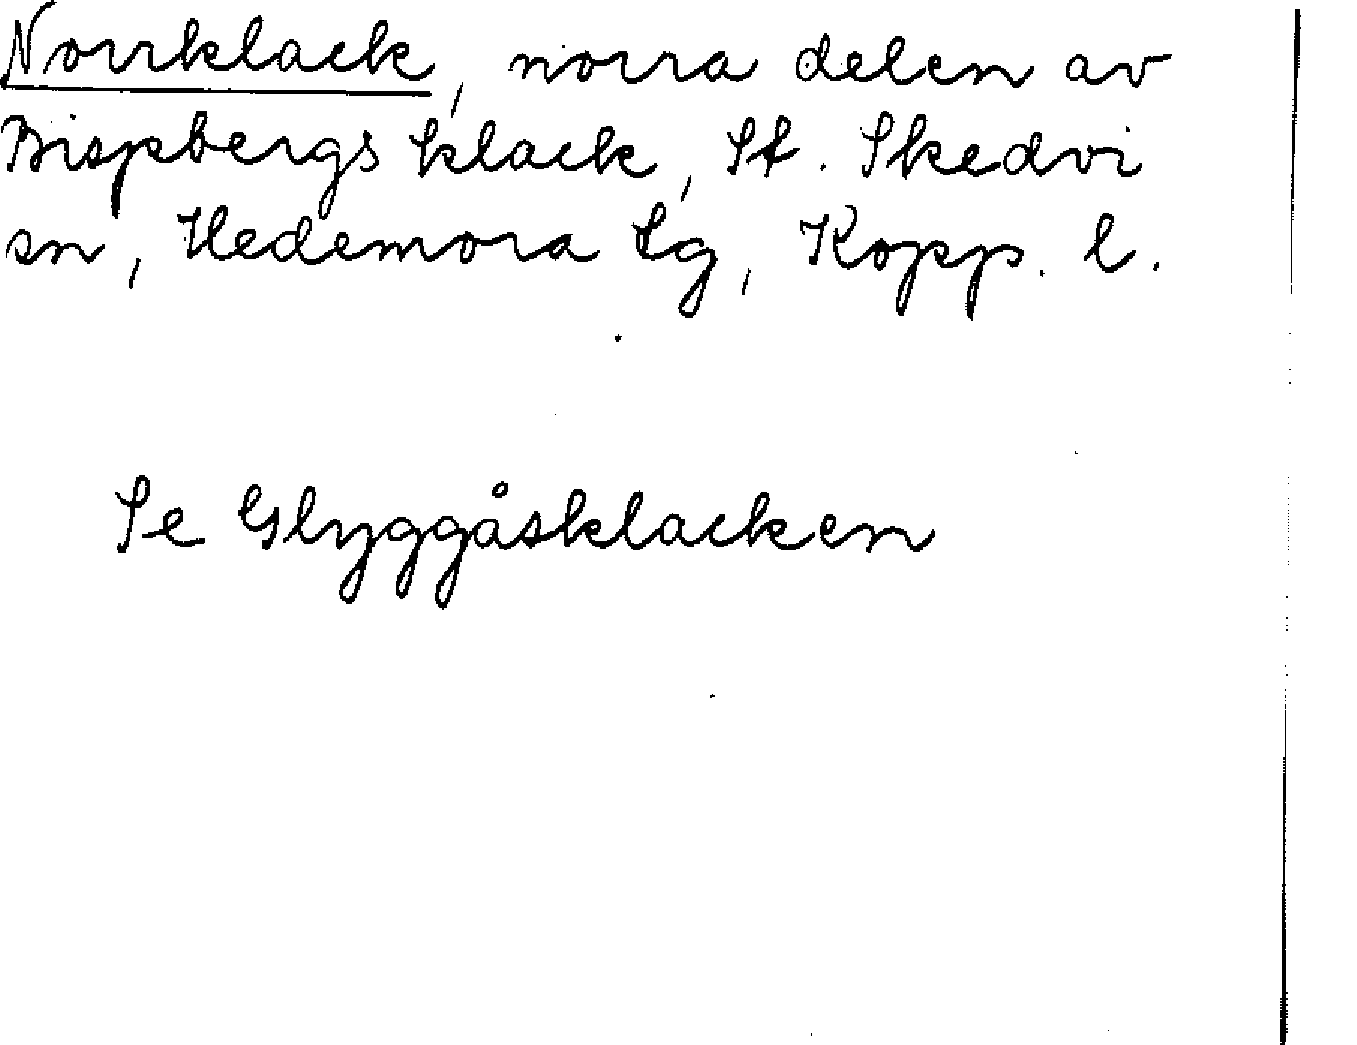 Norrklack, norra delen av
Bispbergs klack, St. Skedvi
sn, Hedemora tg, Kopp. l.
Se Glyggåsklacken